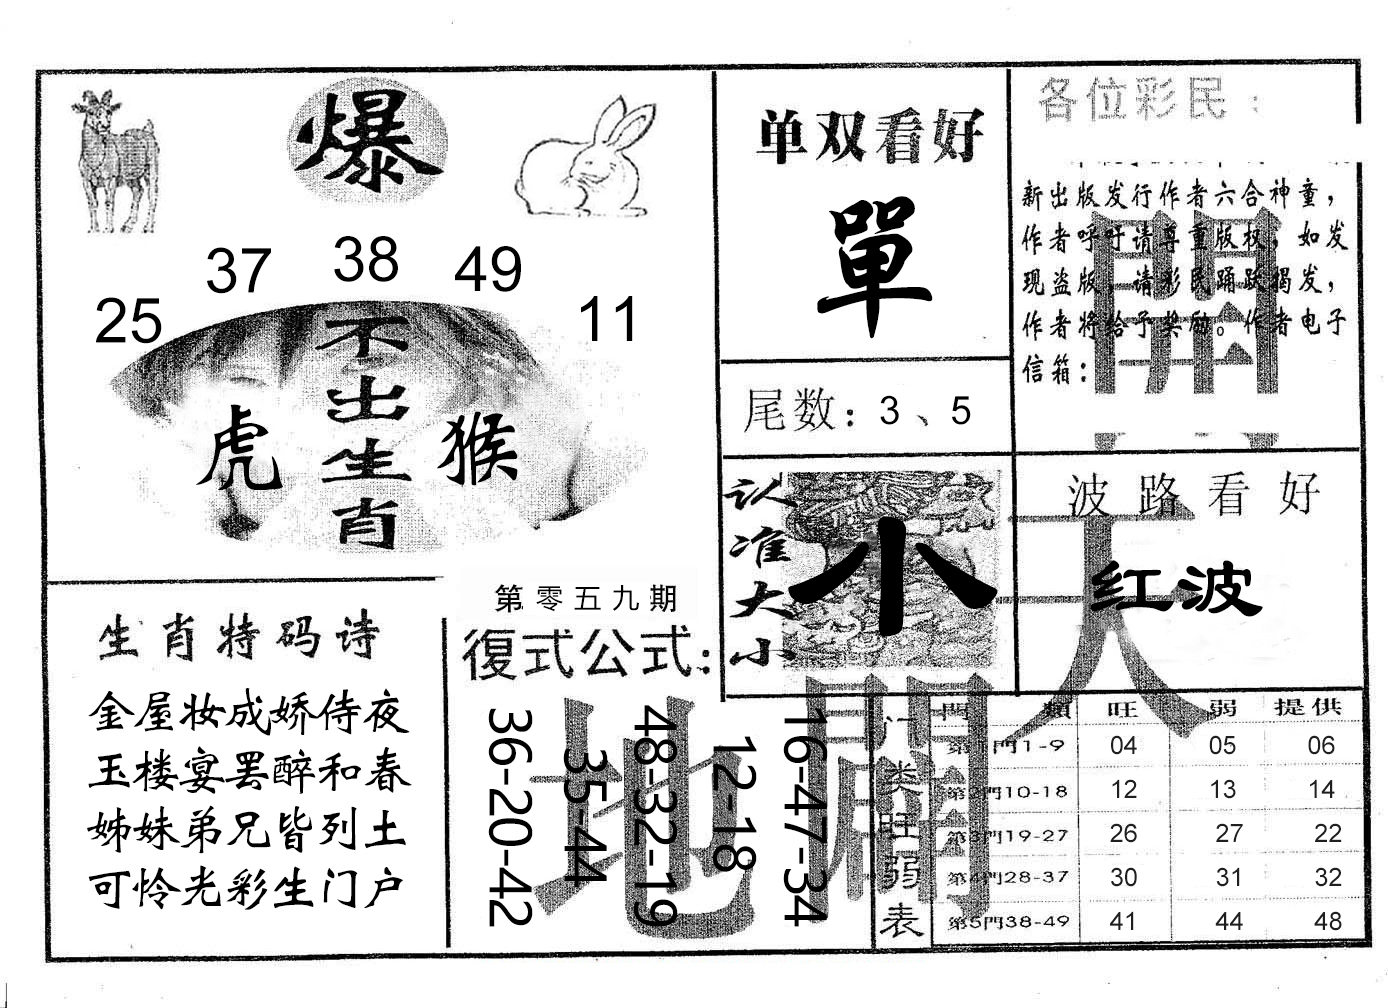 爆
25 37 38 49 11
不出生肖
虎 猴
单双看好
單
尾数：3、5
认准大小
小
各位彩民：
新出版发行作者六合神童，
作者呼吁请尊重版权，如发
现盗版，请彩民踊跃揭发，
作者将给予奖励。作者电子
信箱：
波路看好
红波
生肖特码诗
金屋妆成娇侍夜
玉楼宴罢醉和春
姊妹弟兄皆列土
可怜光彩生门户
第零五九期
復式公式：
36-20-42
35-44
48-32-19
12-18
16-47-34
天地
門类旺弱表
門類 旺 弱 提供
第1門1-9 04 05 06
第2門10-18 12 13 14
第3門19-27 26 27 22
第4門28-37 30 31 32
第5門38-49 41 44 48